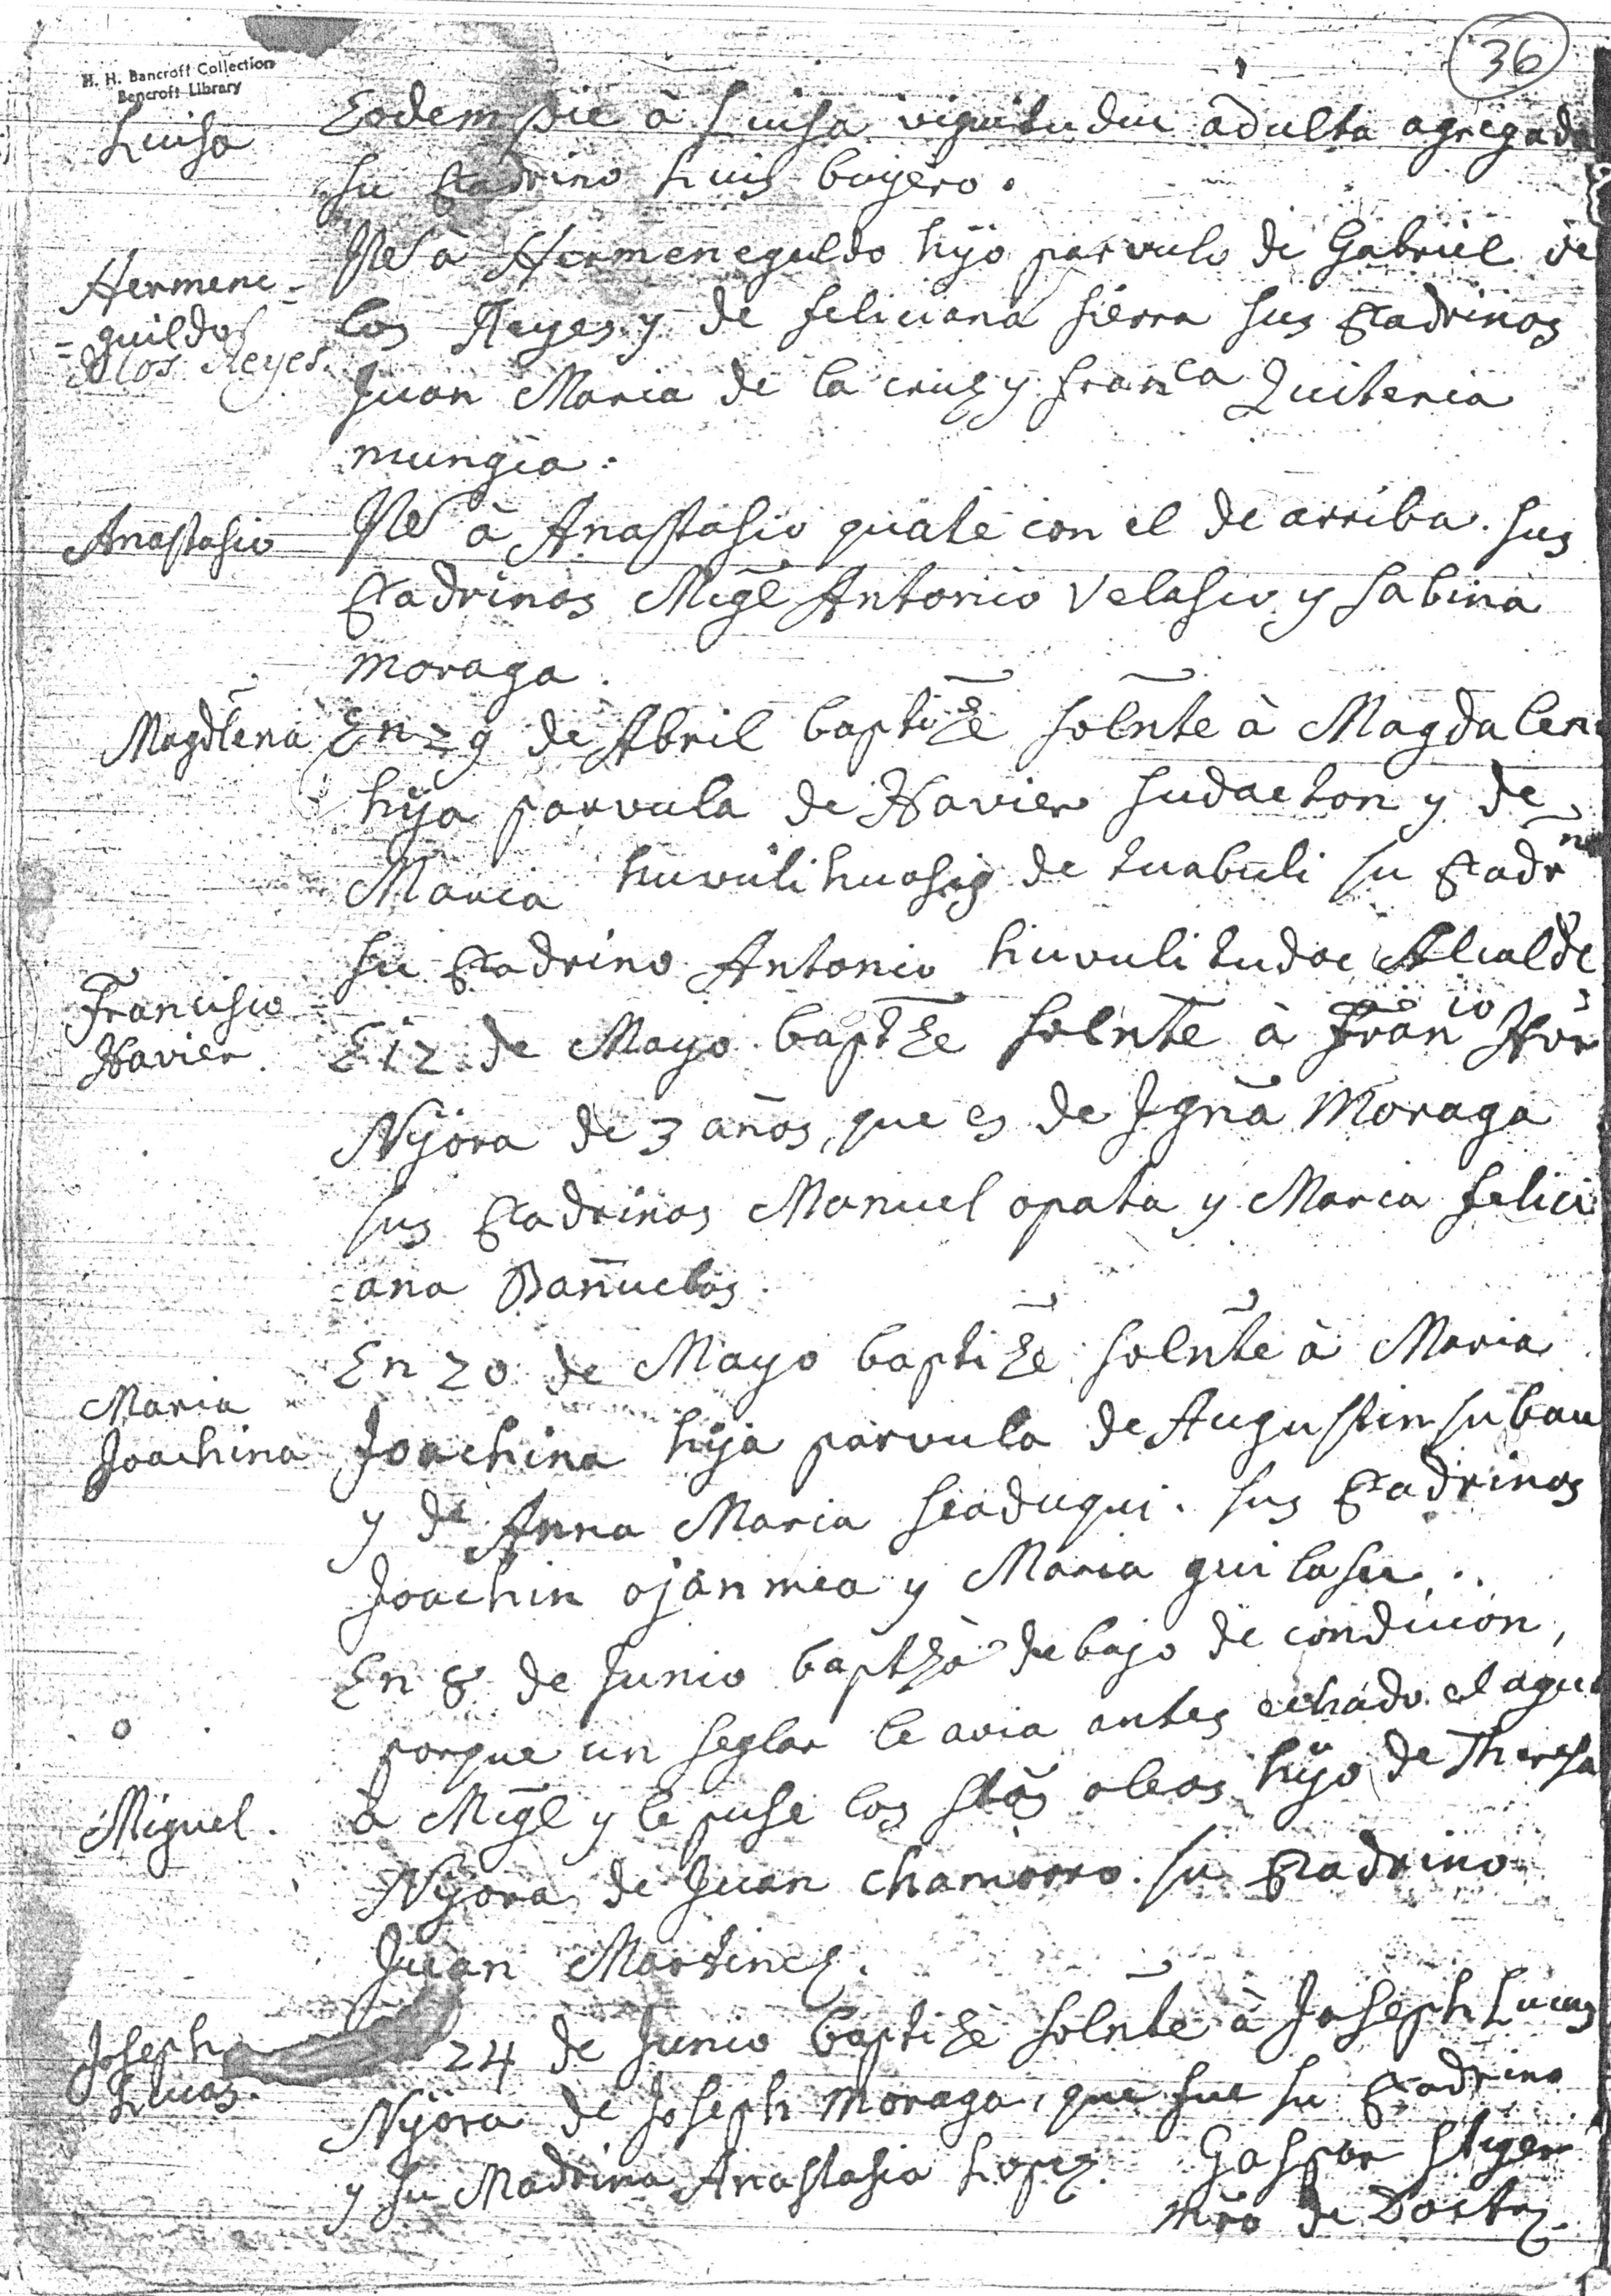 36
H. H. Bancroft Collection
Bancroft Library
Luisa
Eodem die à Luisa viguitudui adulta agregada
su Padrino Luis boijero.
Hermene-
=guildo
de los Reyes.
Ytt à Hermeneguldo hijo parvulo de Gabriel de
los Reyes y de feliciana sierra sus Padrinos
Juan Maria de la cruz y franca Quiteria
mungia.
Anastasio
Ytt à Anastasio quate con el de arriba. sus
Padrinos Migl Antonio Velasco y sabina
moraga.
Magdlena
En 29 de Abril baptizè solnte à Magdalen
hija parvula de Xavier sudacton y de
Maria huvulihuasig de tuabuli su Padrno
su Padrino Antonio huvulitudac Alcalde
Francisco
Xavier.
E 12 de Mayo baptze solnte à Francio Xvr
Nijora de 3 años, que es de Ignã Moraga
sus Padrinos Manuel opata y Maria felici
=ana Bañuelos.
Maria
Joachina
En 20 de Mayo baptize solnte à Maria
Joachina hija parvula de Augustin subau
y de Anna Maria siaduqui. sus Padrinos
Joachin ojanmea y Maria guilasu.
En 8 de Junio baptzò debajo de condicion,
porque un seglar le avia antes echado el agua
Miguel.
à Migl y le puse los stõs oleos hijo de Theresa
Nijora de Juan chamorro. su Padrino
Juan Martinez.
Joseph
Lucas.
24 de Junio baptizè solnte à Joseph Lucas
Nijora de Joseph moraga, que fue su Padrino
y su Madrina Anastasia Lopez. Gaspar Stiger
Mro de Doctrz.